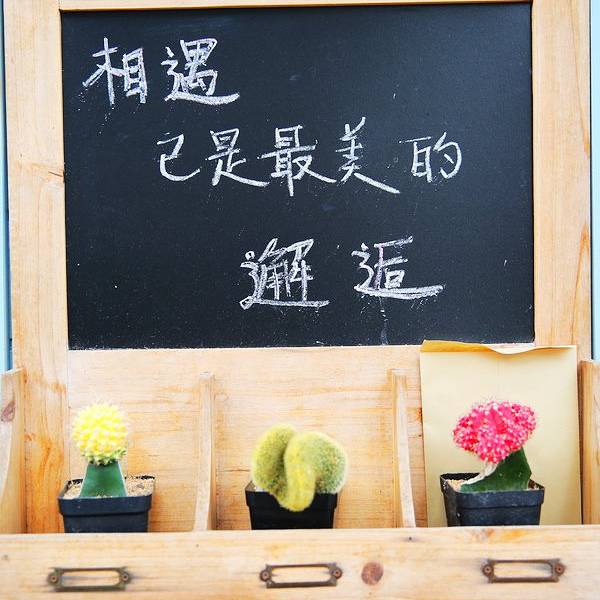 相遇
已是最美的
邂逅